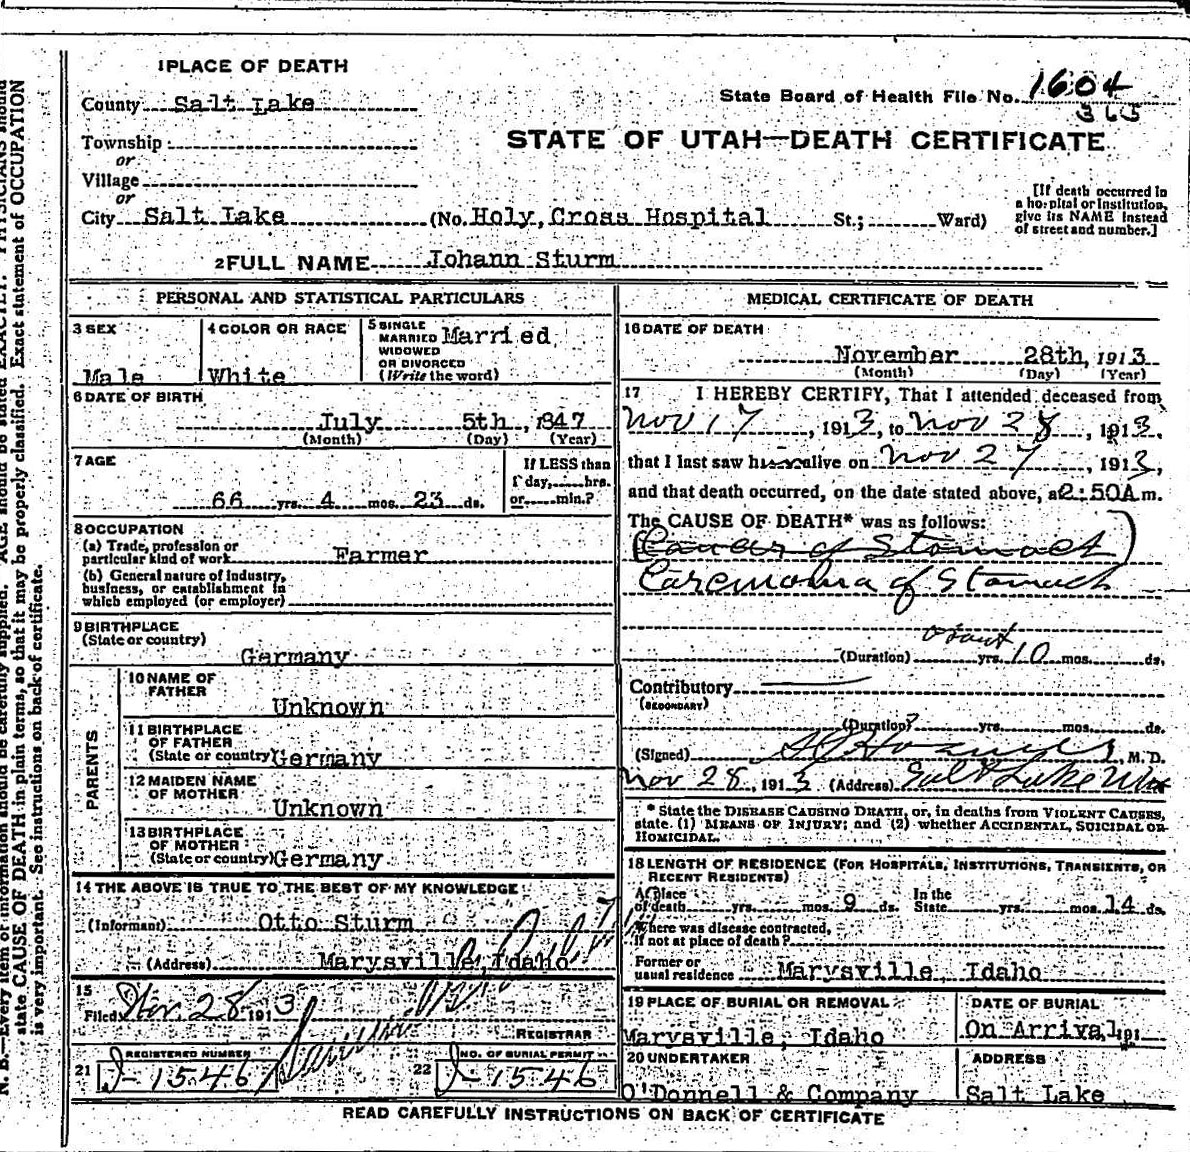 1 PLACE OF DEATH
County Salt Lake
State Board of Health File No. 1604
365
Township
or
Village
or
STATE OF UTAH—DEATH CERTIFICATE
[If death occurred in
a hospital or institution,
give its NAME instead
of street and number.]
City Salt Lake (No. Holy, Cross Hospital St.; Ward)
2 FULL NAME Johann Sturm
PERSONAL AND STATISTICAL PARTICULARS
3 SEX
Male
4 COLOR OR RACE
White
5 SINGLE
MARRIED
WIDOWED
OR DIVORCED
(Write the word)
Married
6 DATE OF BIRTH
July 5th, 1847
(Month) (Day) (Year)
7 AGE
66 yrs. 4 mos. 23 ds.
If LESS than
1 day, hrs.
or min.?
8 OCCUPATION
(a) Trade, profession or
particular kind of work Farmer
(b) General nature of industry,
business, or establishment in
which employed (or employer)
9 BIRTHPLACE
(State or country)
Germany
PARENTS
10 NAME OF
FATHER
Unknown
11 BIRTHPLACE
OF FATHER
(State or country) Germany
12 MAIDEN NAME
OF MOTHER
Unknown
13 BIRTHPLACE
OF MOTHER
(State or country) Germany
14 THE ABOVE IS TRUE TO THE BEST OF MY KNOWLEDGE
(Informant) Otto Sturm
(Address) Marysville, Idaho
15
Filed Nov. 28 1913
REGISTRAR
21 REGISTERED NUMBER
J-1546
22 NO. OF BURIAL PERMIT
J-1546
MEDICAL CERTIFICATE OF DEATH
16 DATE OF DEATH
November 28th, 1913
(Month) (Day) (Year)
17 I HEREBY CERTIFY, That I attended deceased from
Nov 17, 1913, to Nov 28, 1913,
that I last saw h alive on Nov 27, 1913,
and that death occurred, on the date stated above, at 2:50A m.
The CAUSE OF DEATH* was as follows:
(Cancer of Stomach)
Carcinoma of Stomach
about
(Duration) yrs. 10 mos. ds.
Contributory
(SECONDARY)
(Duration) ? yrs. mos. ds.
(Signed) M. D.
Nov 28, 1913 (Address) Salt Lake Utah
* State the DISEASE CAUSING DEATH, or, in deaths from VIOLENT CAUSES,
state (1) MEANS OF INJURY; and (2) whether ACCIDENTAL, SUICIDAL OR
HOMICIDAL.
18 LENGTH OF RESIDENCE (FOR HOSPITALS, INSTITUTIONS, TRANSIENTS, OR
RECENT RESIDENTS)
At place
of death yrs. mos. 9 ds. In the
State yrs. mos. 14 ds.
Where was disease contracted,
If not at place of death?
Former or
usual residence Marysville, Idaho
19 PLACE OF BURIAL OR REMOVAL
Marysville, Idaho
DATE OF BURIAL
On Arrival, 191
20 UNDERTAKER
O'Donnell & Company
ADDRESS
Salt Lake
READ CAREFULLY INSTRUCTIONS ON BACK OF CERTIFICATE
N. B.—Every item of information should be carefully supplied. AGE should be stated EXACTLY. PHYSICIANS should
state CAUSE OF DEATH in plain terms, so that it may be properly classified. Exact statement of OCCUPATION
is very important. See instructions on back of certificate.